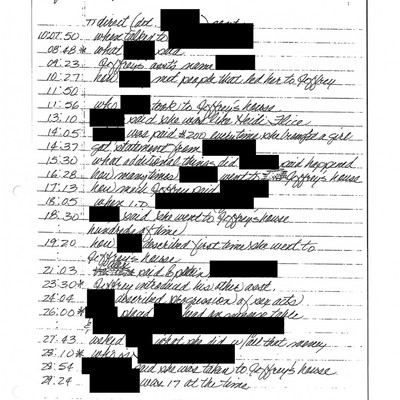 direct (dot
10:07:50 when talked to
08:48* what said
09:23 Joffrey's assts name
10:27 how met people that led her to Joffrey
11:50
11:56 who took to Joffrey's house
13:10 said she was like Heidi Flice
14:05 was paid $200 everytime she brought a girl
14:37 got statement from
15:30 what additional things did said happened
16:28 how many times went to Joffrey's house
17:13 how much Joffrey paid
18:05 when I.D.
18:30* said she went to Joffrey's house
hundreds of time)
19:20 how described first time she went to
Joffrey's house
21:03 said
23:30* Joffrey introduced his other asst.
24:04 described progression of sex acts
26:00* placed and on massage table
&
27:43 asked what she did w/ all that money
28:10* when
28:54 said she was taken to Joffrey's house
29:24 was 17 at the time